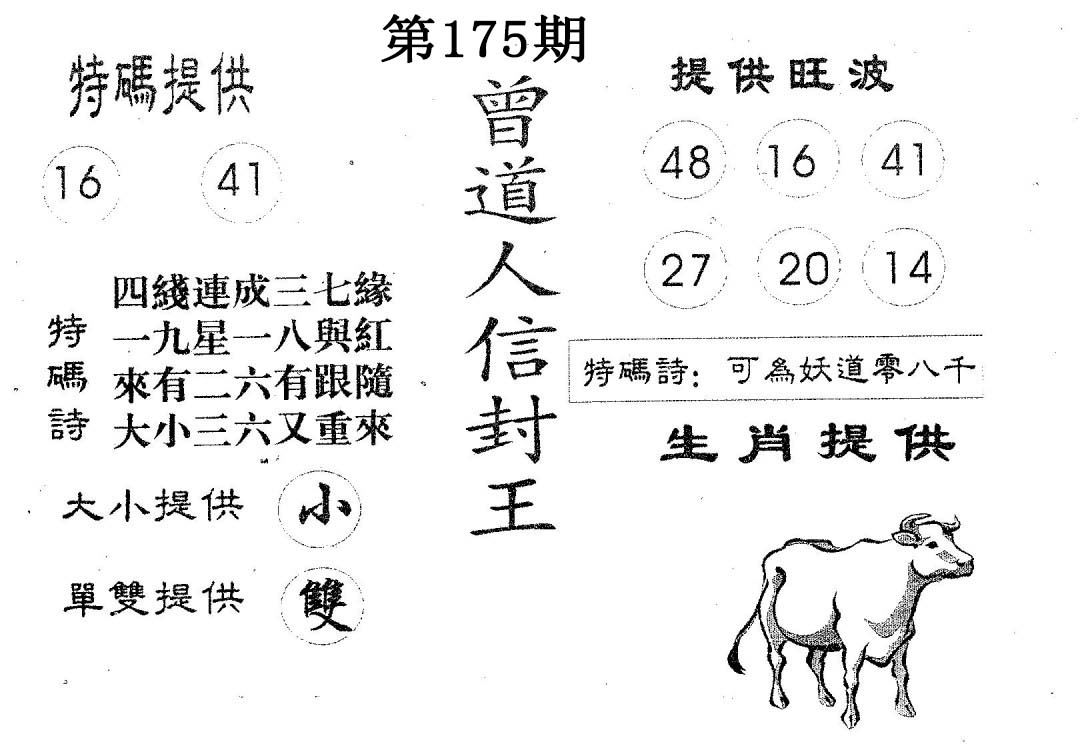 第175期
特碼提供
16 41
四綫連成三七緣
一九星一八與紅
來有二六有跟隨
大小三六又重來
特碼詩
大小提供 小
單雙提供 雙
曾道人信封王
提供旺波
48 16 41
27 20 14
特碼詩：可為妖道零八千
生肖提供